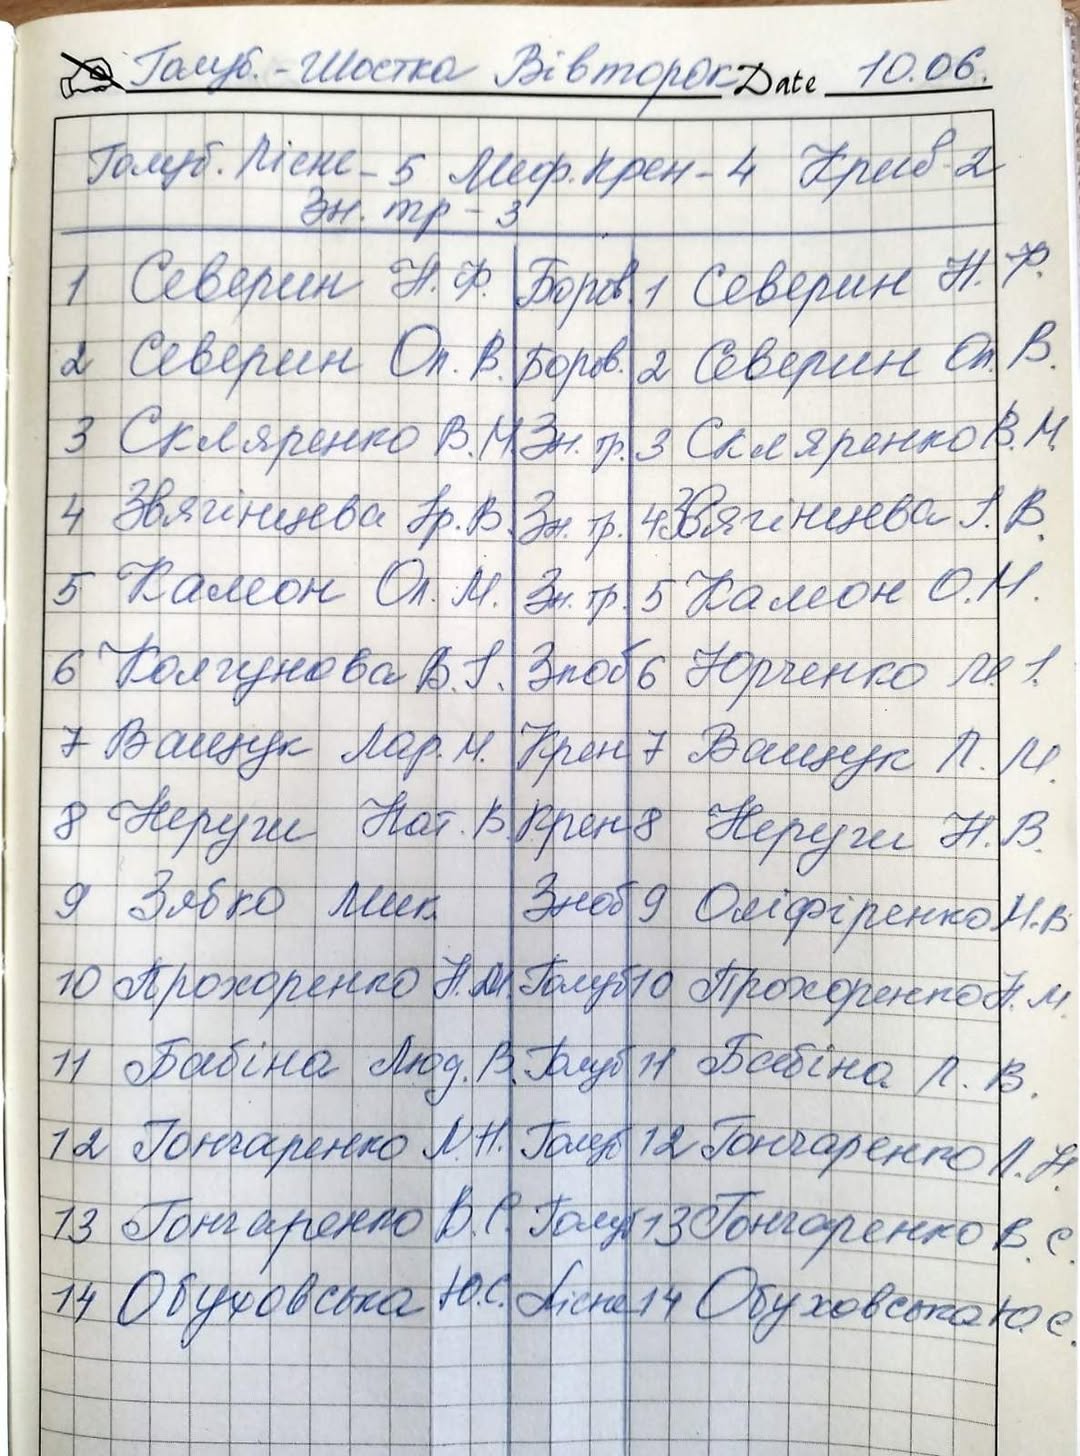 Голуб. - Шостка Вівторок Date 10.06.
Голуб. Лісне - 5 Меф. Крен - 4 Крив - 2
Зн. тр - 3
1 Северин Н. Ф. Боров. 1 Северин Н. Ф.
2 Северин Ол. В. Боров. 2 Северин Ол. В.
3 Скляренко В. М. Зн. тр. 3 Скляренко В. М.
4 Звягінцева Ір. В. Зн. тр. 4 Звягінцева І. В.
5 Камеон Ол. М. Зн. тр. 5 Камеон О. М.
6 Колгунова В. І. Зноб 6 Юрченко І.
7 Ващук Лар. М. Крен 7 Ващук Л. М.
8 Неруги Нат. В. Крен 8 Неруги Н. В.
9 Зябко Мик. Зноб 9 Оліфіренко Н. В
10 Прохоренко Н. М. Голуб 10 Прохоренко Н. М.
11 Бабіна Люд. В. Голуб 11 Бабіна Л. В.
12 Гончаренко Л. Н. Голуб 12 Гончаренко Л. Н.
13 Гончаренко В. С. Голуб 13 Гончаренко В. С.
14 Обуховська Ю. С. Лісне 14 Обуховська Ю. С.